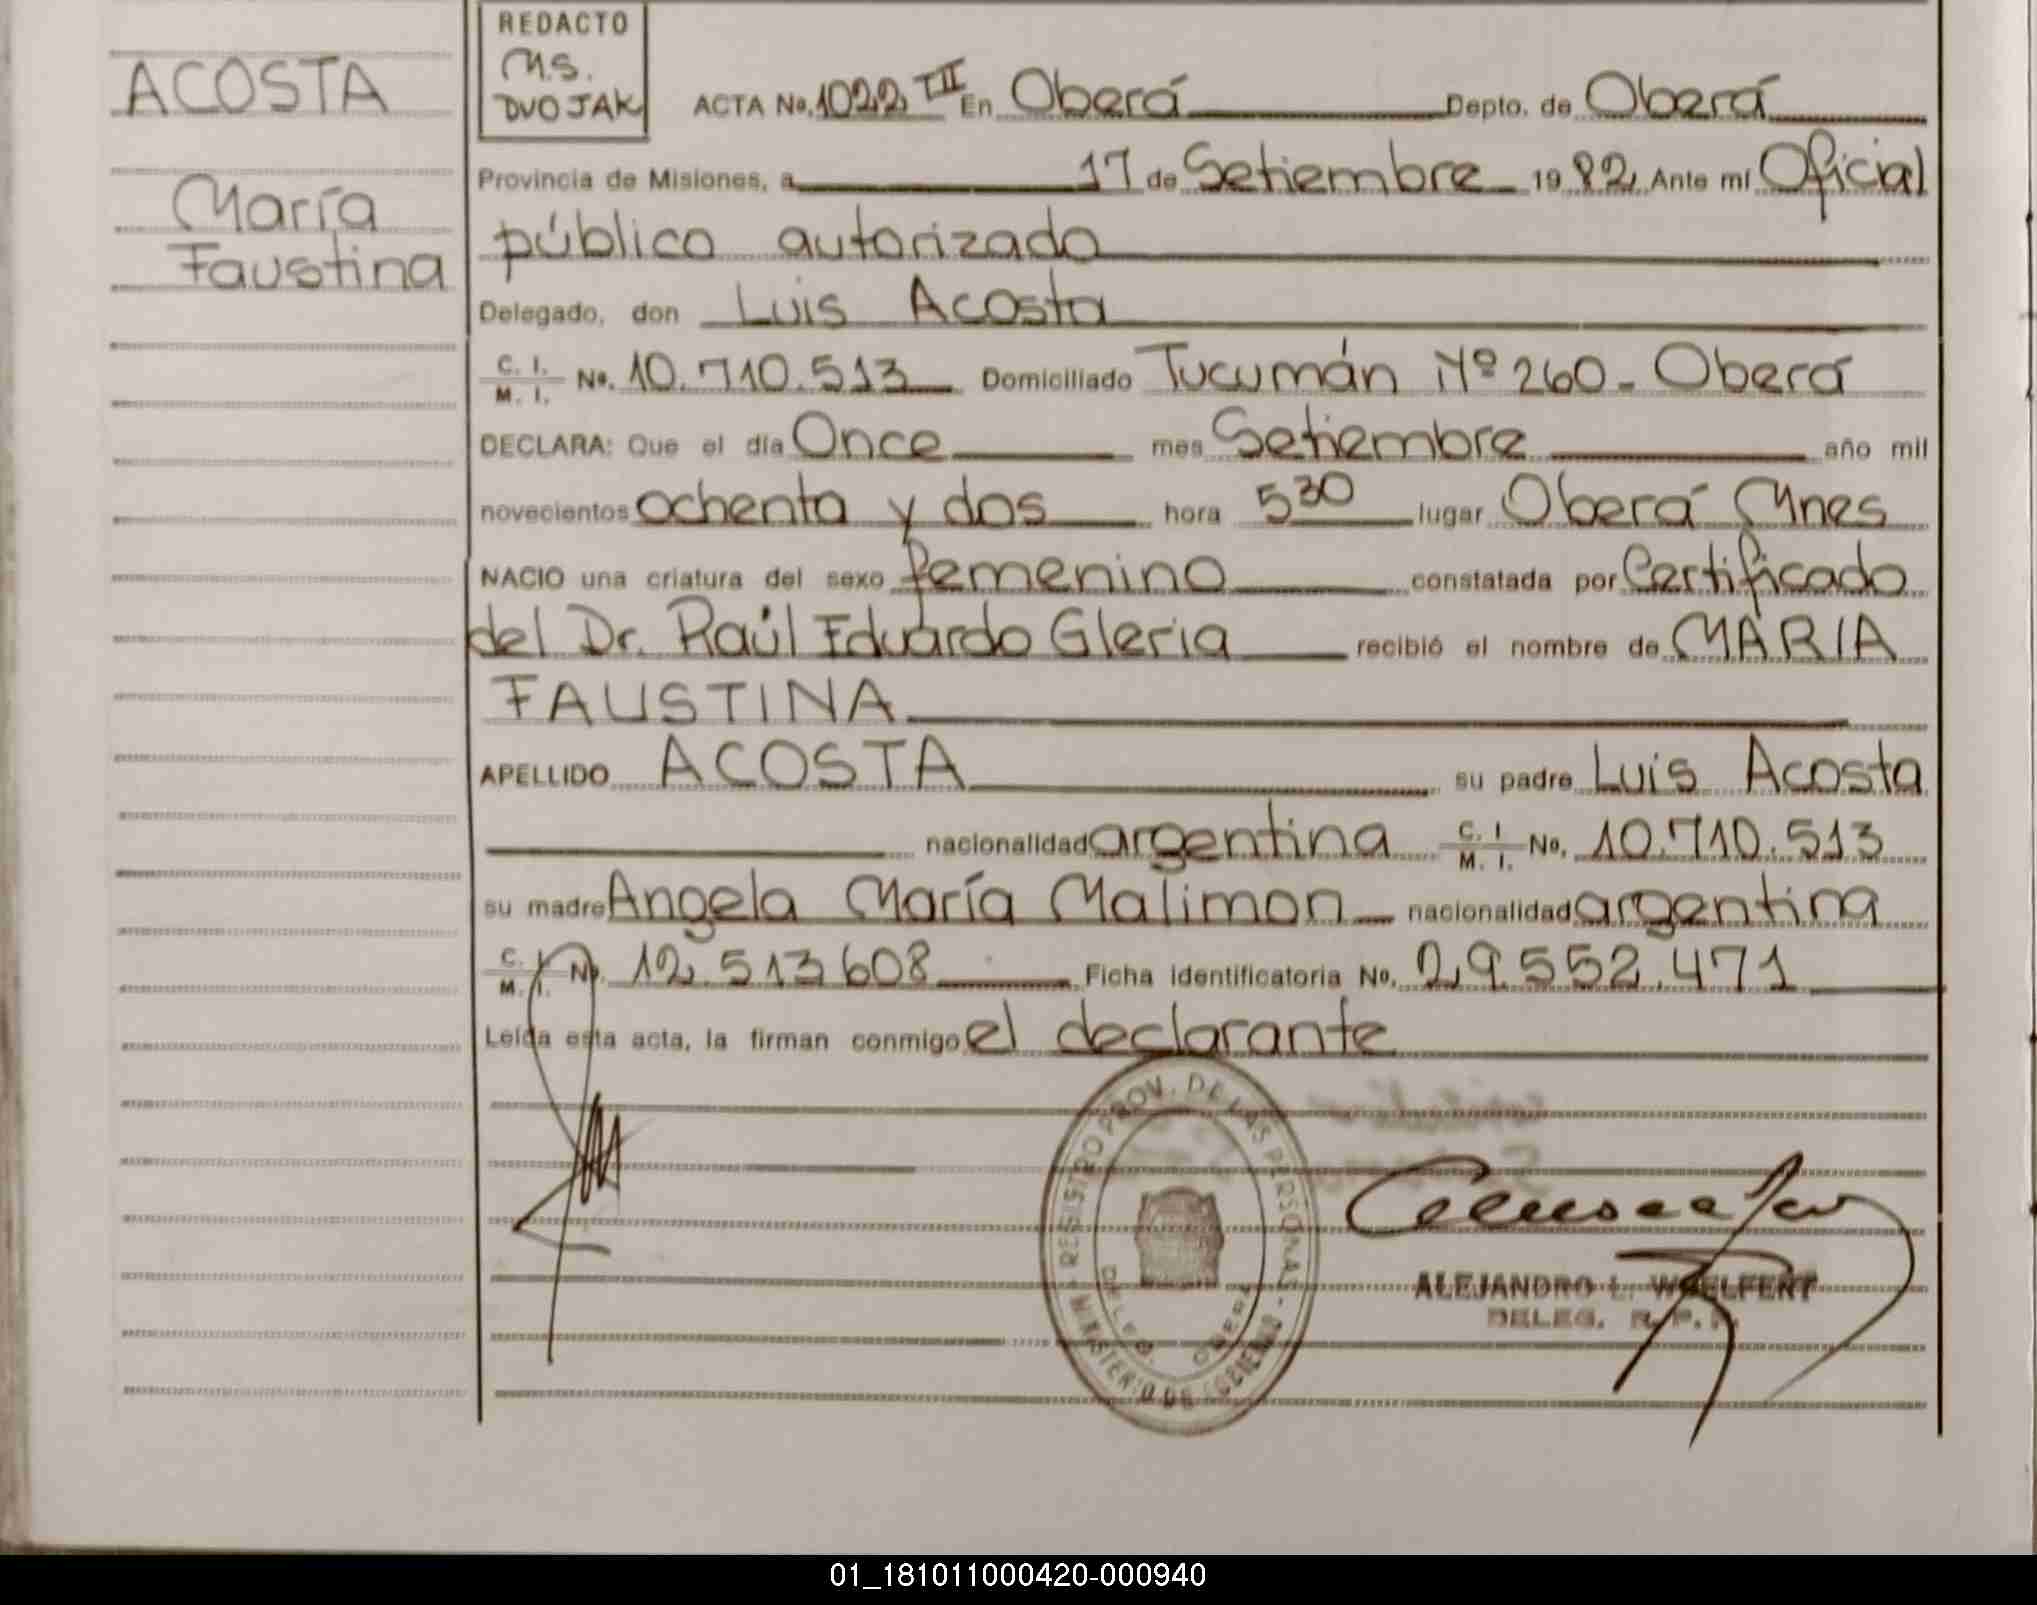 ACOSTA
María
Faustina
REDACTO
M.S.
DVOJAK
ACTA No. 1022 TII En Oberá Depto. de Oberá
Provincia de Misiones, a 17 de Setiembre 1982 Ante mí Oficial
público autorizado
Delegado, don Luis Acosta
C. I. M. I. No. 10.710.513 Domiciliado Tucumán Nº 260 - Oberá
DECLARA: Que el día Once mes Setiembre año mil
novecientos ochenta y dos hora 5 30 lugar Oberá Mnes
NACIO una criatura del sexo femenino constatada por Certificado
del Dr. Raúl Eduardo Gleria recibió el nombre de MARIA
FAUSTINA
APELLIDO ACOSTA su padre Luis Acosta
nacionalidad argentina C. I M. I. No. 10.710.513
su madre Angela María Malimon nacionalidad argentina
C. I. M. I. No. 12.513 608 Ficha identificatoria No. 29.552.471
Leída esta acta, la firman conmigo el declarante
REGISTRO PROV. DE LAS PERSONAS
MINISTERIO DE GOBIERNO
DELEG. OBERA
ALEJANDRO L. WOELFERT
DELEG. R. P. P.
01_181011000420-000940